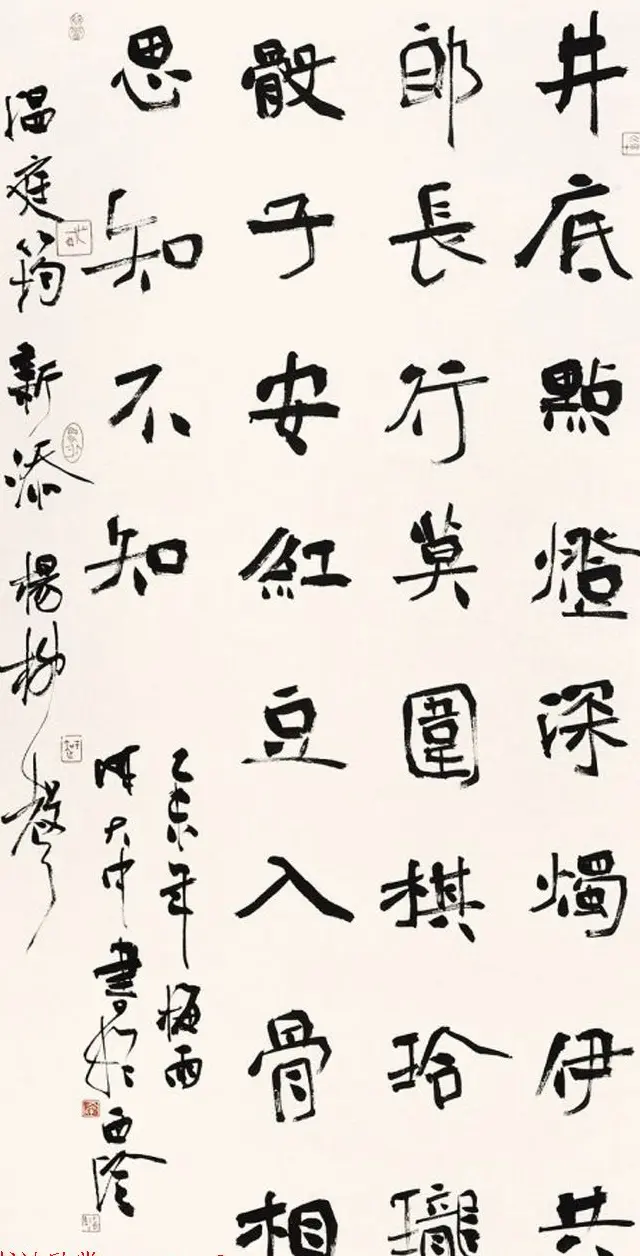 井底點燈深燭伊共
郎長行莫圍棋玲瓏
骰子安紅豆入骨相
思知不知
乙未年梅雨
陳大中書於西泠
温庭筠新添楊柳聲